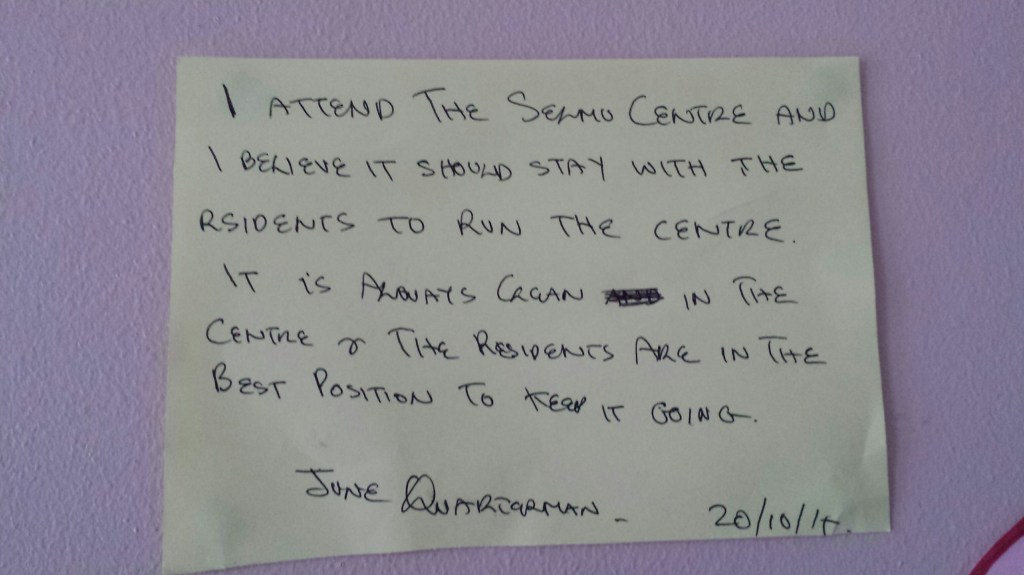 I ATTEND THE SELMO CENTRE AND
I BELIEVE IT SHOULD STAY WITH THE
RSIDENTS TO RUN THE CENTRE.
IT is ALWAYS CLEAN IN THE
CENTRE & THE RESIDENTS ARE IN THE
BEST POSITION TO KEEP IT GOING.
JUNE QUARTERMAN -
20/10/14.